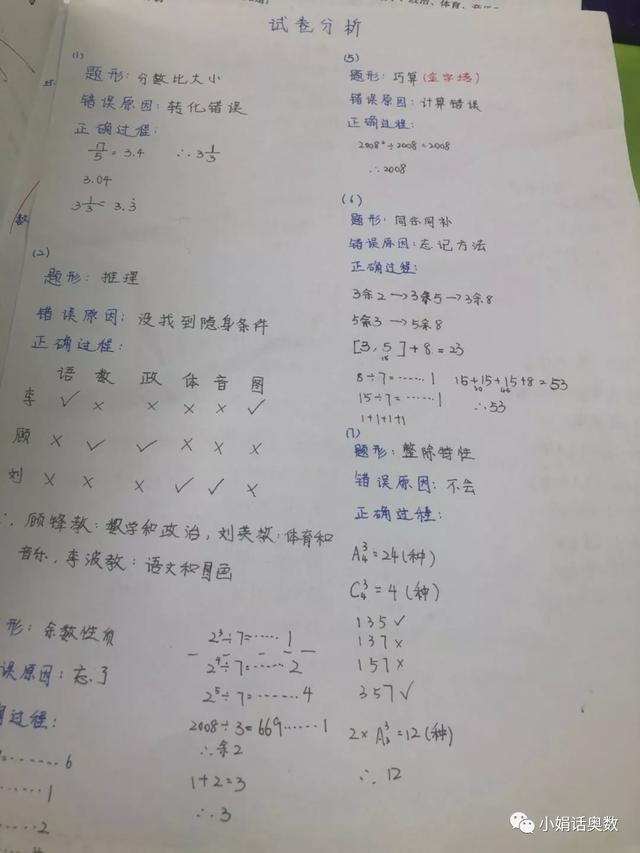 政治、体育、音
试卷分析
(1)
题形：分数比大小
错误原因：转化错误
正确过程：
17/5 = 3.4 ∴3 1/3
3.04
3 1/3 = 3.3̇
(2)
题形：推理
错误原因：没找到隐身条件
正确过程：
语 数 政 体 音 图
李 ✓ × × × × ✓
顾 × ✓ ✓ × × ×
刘 × × × ✓ ✓ ×
∴顾锋教：数学和政治，刘英教：体育和
音乐，李波教：语文和图画
形：余数性质
误原因：忘了
过程：
=……6
……1
……2
2³÷7=……1
2⁴÷7=……2
2⁵÷7=……4
2008÷3=669……1
∴余2
1+2=3
∴3
(5)
题形：巧算(金字塔)
错误原因：计算错误
正确过程：
2008²÷2008=2008
∴2008
(6)
题形：同余同补
错误原因：忘记方法
正确过程：
3余2→3余5→3余8
5余3→5余8
[3,5]+8=23
15
8÷7=……1 15+15+15+8=53
15÷7=……1 ∴53
1+1+1+1
(7)
题形：整除特性
错误原因：不会
正确过程：
A₄³=24(种)
C₄³=4(种)
135✓
137×
157×
357✓
2×A₃³=12(种)
∴12
小娟话奥数